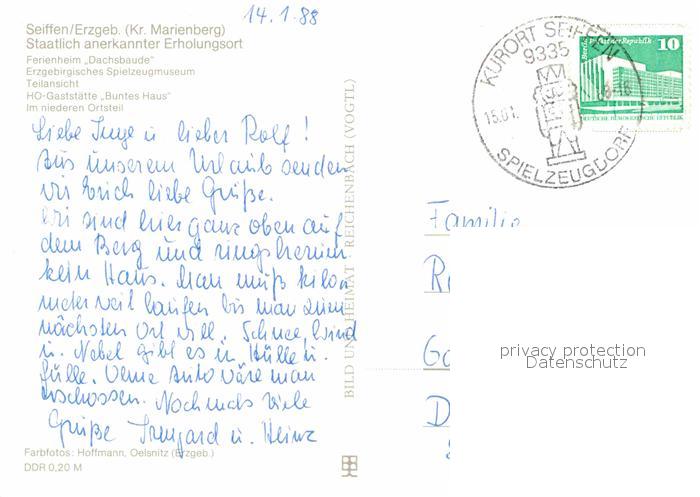 14.1.88
Seiffen/Erzgeb. (Kr. Marienberg)
Staatlich anerkannter Erholungsort
Ferienheim „Dachsbaude"
Erzgebirgisches Spielzeugmuseum
Teilansicht
HO-Gaststätte „Buntes Haus"
Im niederen Ortsteil
Liebe Inge u. lieber Rolf!
Aus unserem Urlaub senden
wir Euch liebe Grüße.
Wir sind hier ganz oben auf
dem Berg und ringsherum
kein Haus. Man muß kilo
meter weit laufen bis man zum
nächsten Ort will. Schnee, Wind
u. Nebel gibt es in Hülle u.
Fülle. Ohne Auto wäre man
erschossen. Nochmals viele
Grüße Irmgard u. Heinz
Farbfotos: Hoffmann, Oelsnitz (Erzgeb.)
DDR 0,20 M
BILD UND HEIMAT REICHENBACH (VOGTL)
KURORT SEIFFEN
9335
15.01.
SPIELZEUGDORF
10
DEUTSCHE DEMOKRATISCHE REPUBLIK
Familie
R
Ga
D
privacy protection
Datenschutz